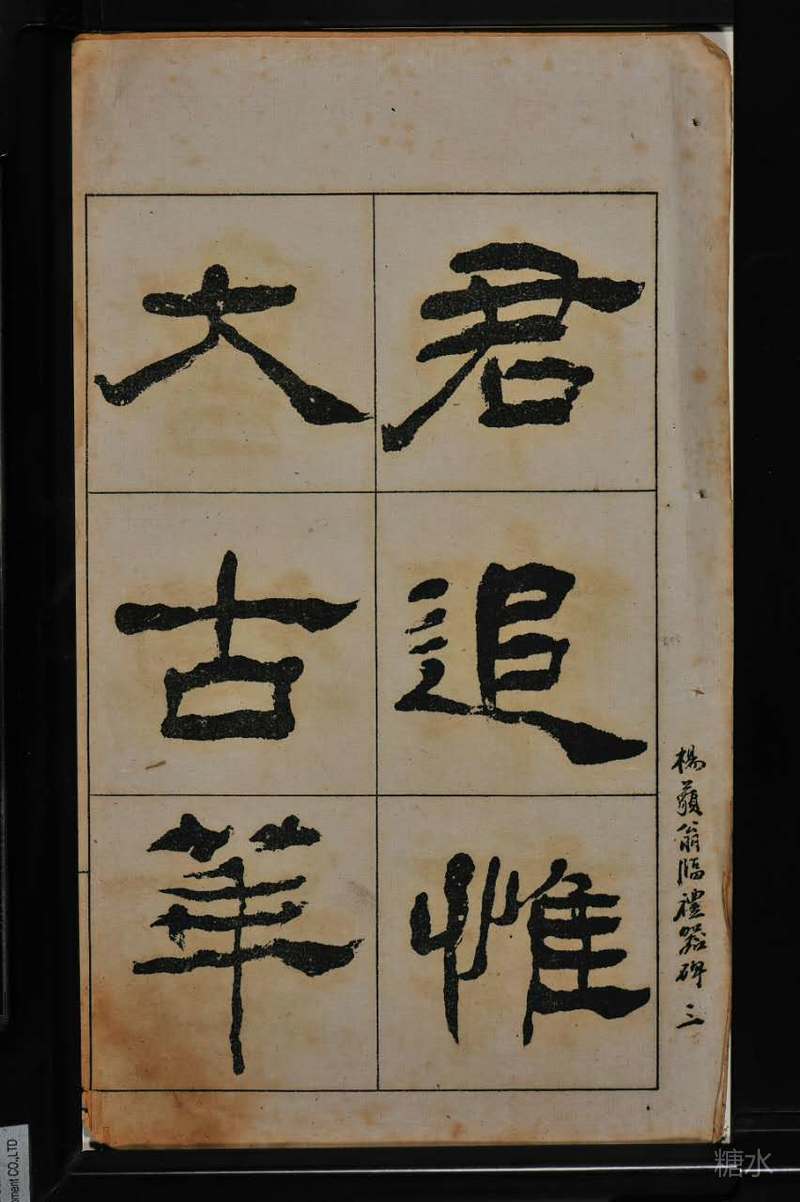 楊藐翁臨禮器碑 三
君追惟
大古華
ment CO.,LTD
糖水